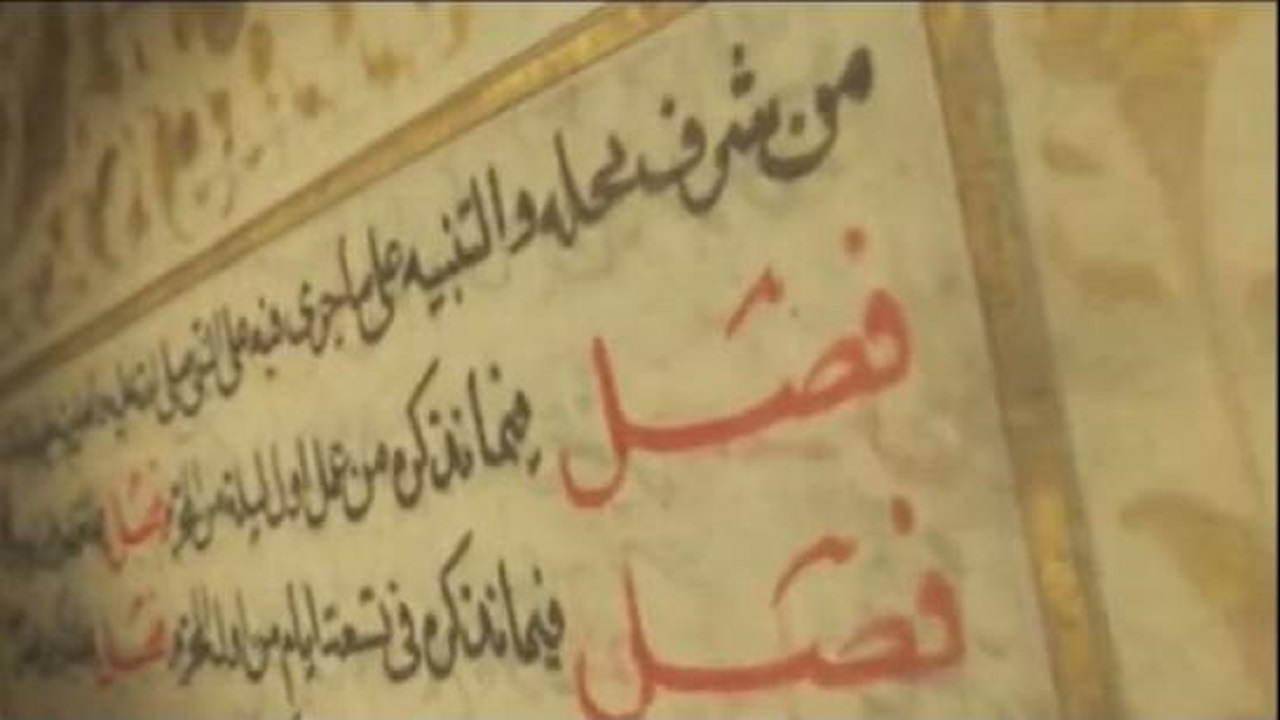 من شرف محله والتنبيه على ما جرى فيه على النبي صلى
فصل فيما نذكره من عمل اول ليلة من المحرم فصل
فصل فيما نذكره في تسعة ايام من اول المحرم فصل